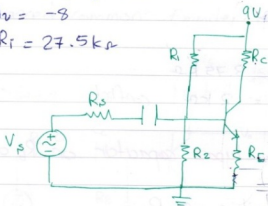 = -8
Ri = 27.5kΩ
9V
R1
Rc
Rs
Vs
R2
RE